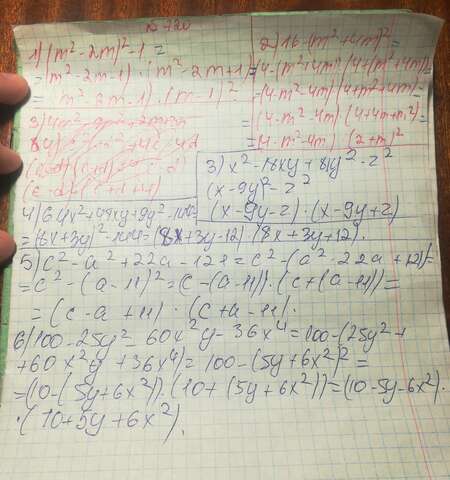 1) (m² - 2m)² - 1 =
= (m² - 2m - 1) · (m² - 2m + 1) =
= (m² - 2m - 1) · (m - 1)²
2) 16 - (m² + 4m)² =
= (4 - (m² + 4m)) (4 + (m² + 4m)) =
= (4 - m² - 4m) (4 + m² + 4m) =
= (4 - m² - 4m) · (4 + 4m + m²) =
= (4 - m² - 4m) · (2 + m)²
3) x² - 18xy + 81y² - z²
(x - 9y)² - z²
(x - 9y - z) · (x - 9y + z)
4) 64x² + 48xy + 9y² - 144 =
= (8x + 3y)² - 144 = (8x + 3y - 12) · (8x + 3y + 12).
5) c² - a² + 22a - 121 = c² - (a² - 22a + 121) =
= c² - (a - 11)² = (c - (a - 11)) · (c + (a - 11)) =
= (c - a + 11) · (c + a - 11).
6) 100 - 25y² - 60x²y - 36x⁴ = 100 - (25y² +
+ 60x²y + 36x⁴) = 100 - (5y + 6x²)² =
= (10 - (5y + 6x²)) · (10 + (5y + 6x²)) = (10 - 5y - 6x²) ·
· (10 + 5y + 6x²).